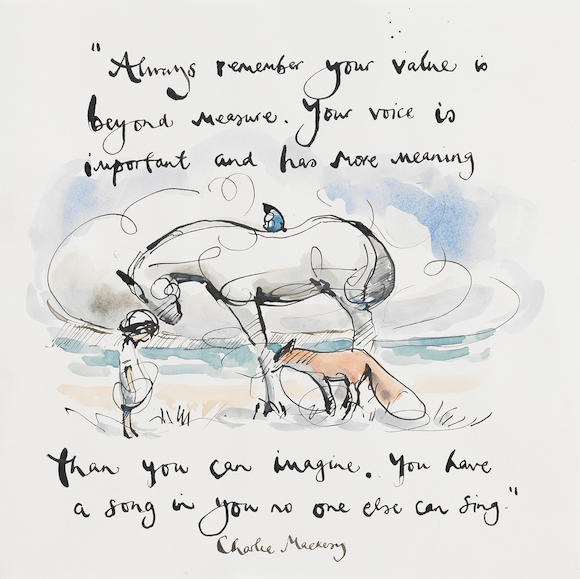 "Always remember your value is
beyond measure. Your voice is
important and has more meaning
than you can imagine. You have
a song in you no one else can sing."
Charlie Mackesy